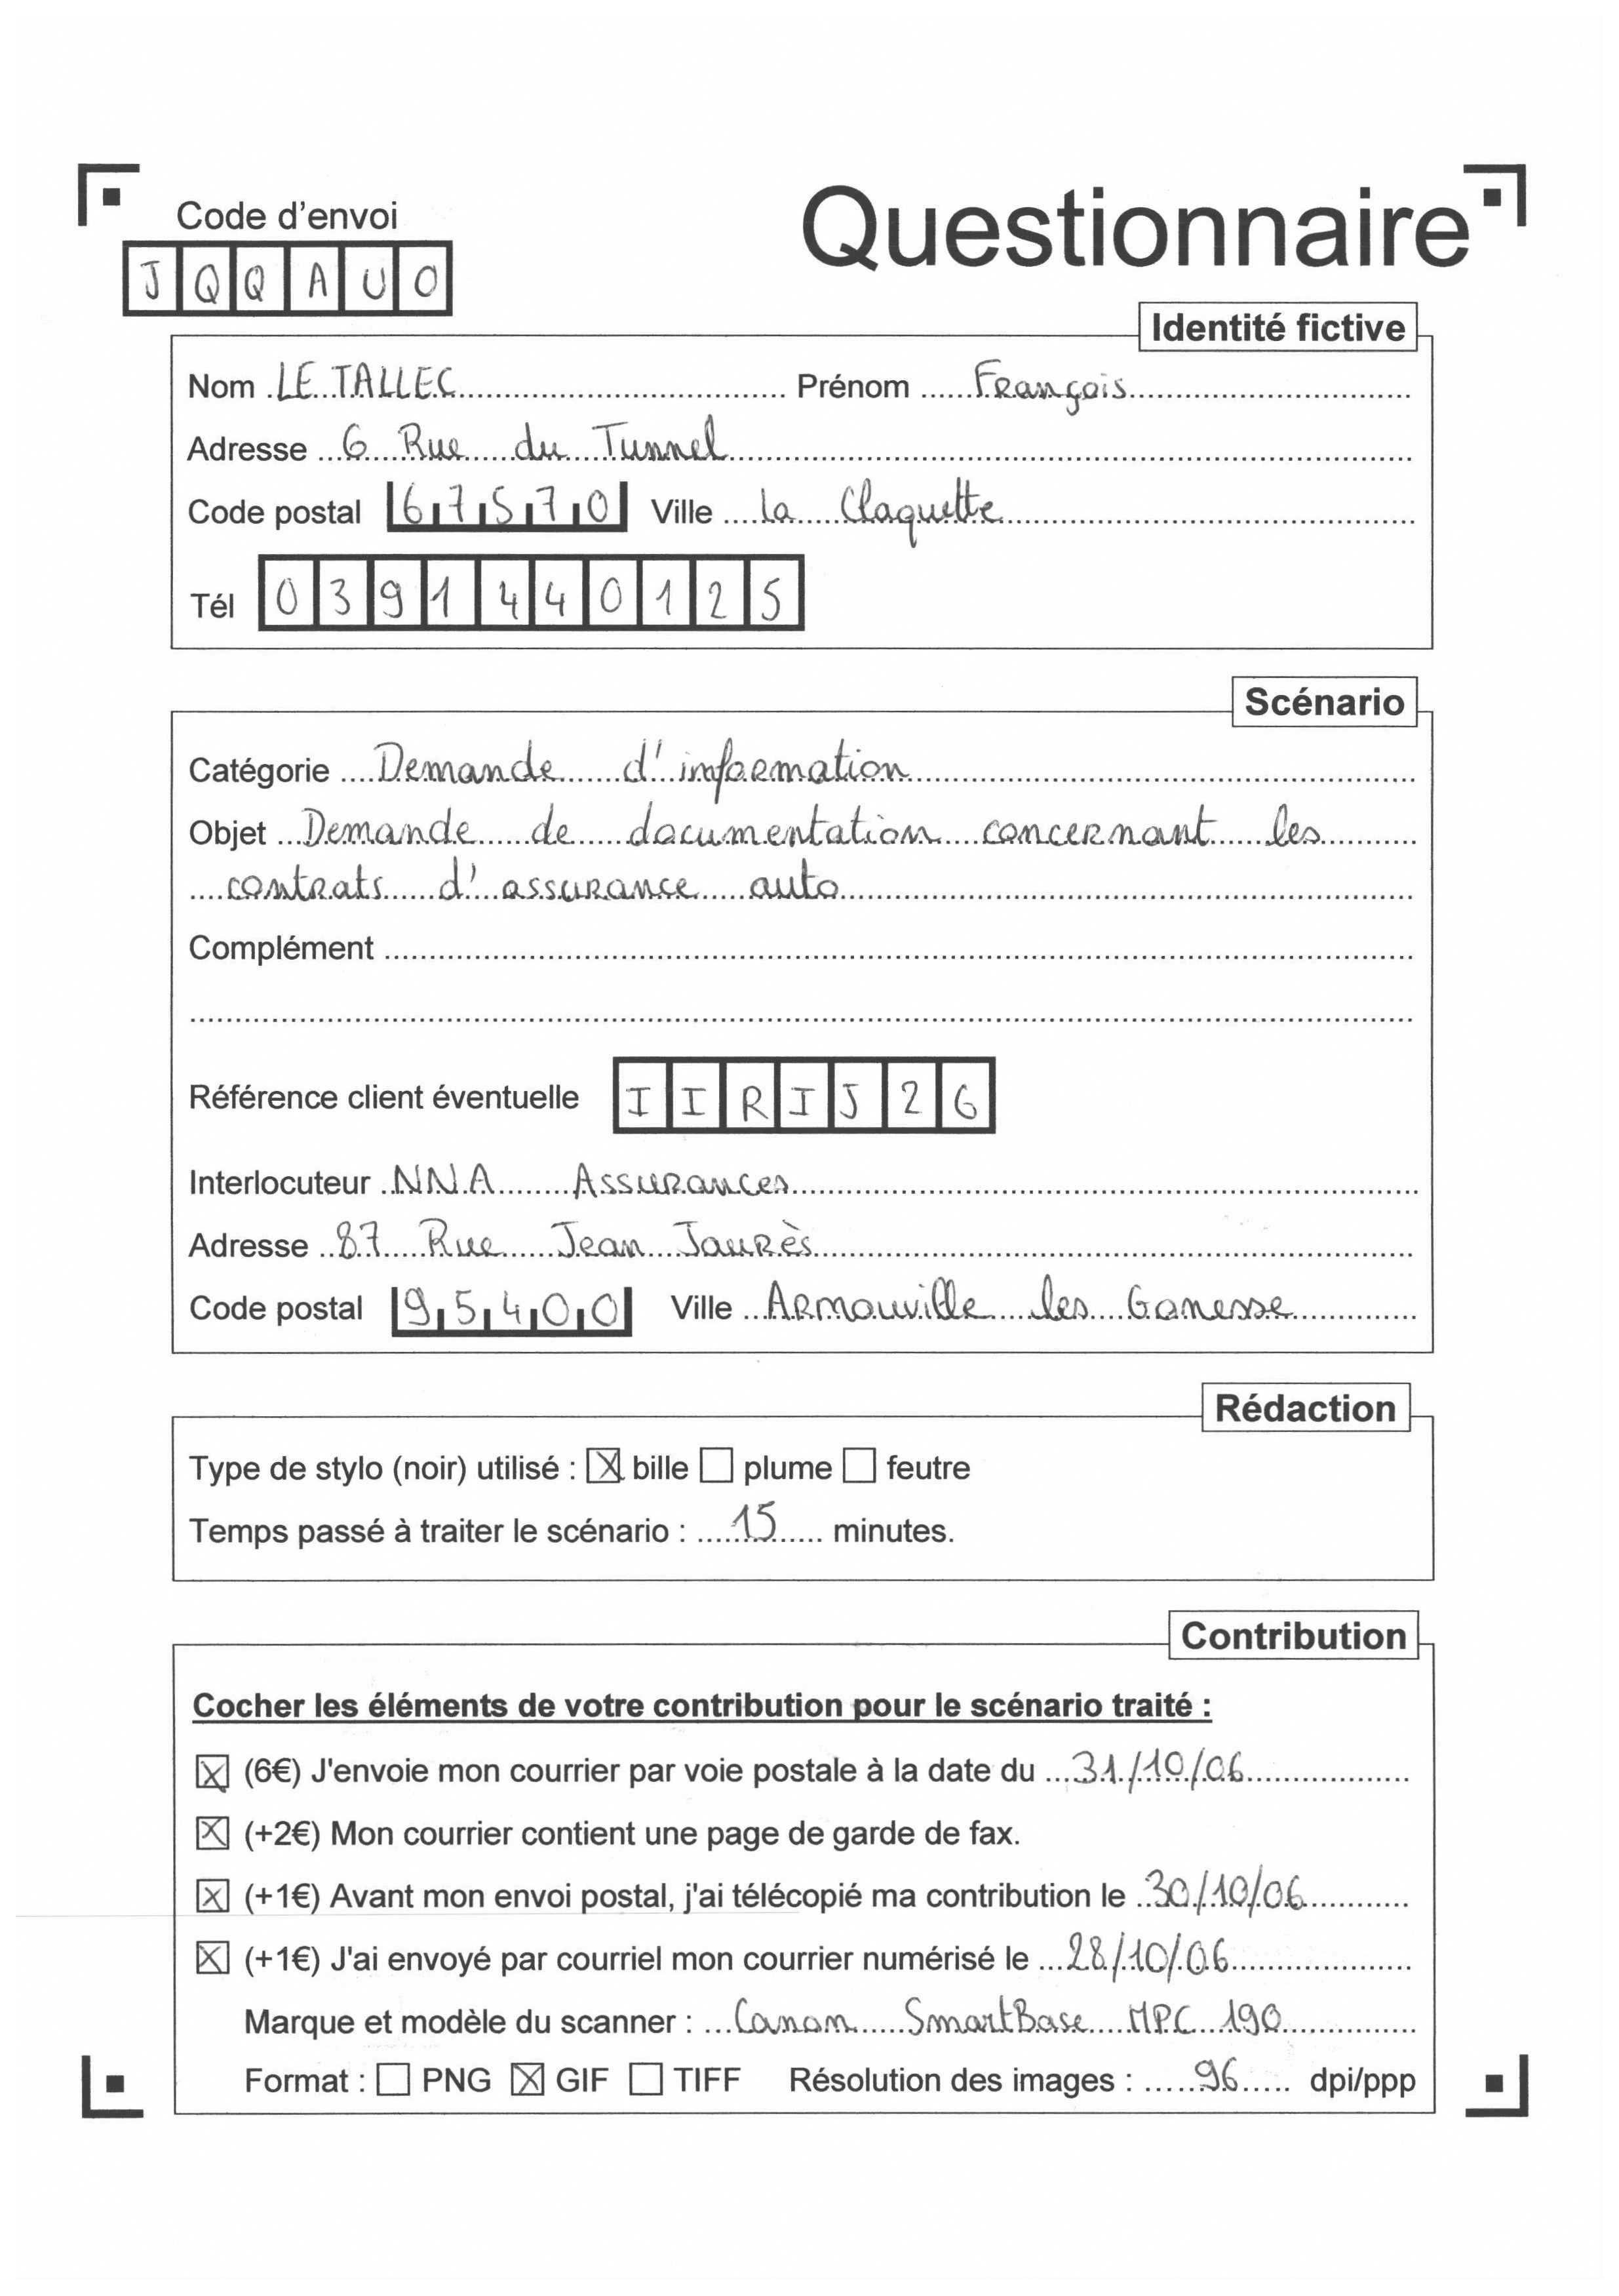 Code d'envoi
Questionnaire
JQQAUO
Identité fictive
Nom LE TALLEC Prénom François
Adresse 6 Rue du Tunnel
Code postal 67570 Ville la Claquette
Tél 0391440125
Scénario
Catégorie Demande d'information
Objet Demande de documentation concernant les
contrats d'assurance auto
Complément
Référence client éventuelle IIRIJ26
Interlocuteur NNA Assurances
Adresse 87 Rue Jean Jaurès
Code postal 95400 Ville Arnouville les Gonesse
Rédaction
Type de stylo (noir) utilisé : ☒ bille ☐ plume ☐ feutre
Temps passé à traiter le scénario : 15 minutes.
Contribution
Cocher les éléments de votre contribution pour le scénario traité :
☒ (6€) J'envoie mon courrier par voie postale à la date du 31/10/06
☒ (+2€) Mon courrier contient une page de garde de fax.
☒ (+1€) Avant mon envoi postal, j'ai télécopié ma contribution le 30/10/06
☒ (+1€) J'ai envoyé par courriel mon courrier numérisé le 28/10/06
Marque et modèle du scanner : Canon SmartBase MPC 190
Format : ☐ PNG ☒ GIF ☐ TIFF Résolution des images : 96 dpi/ppp